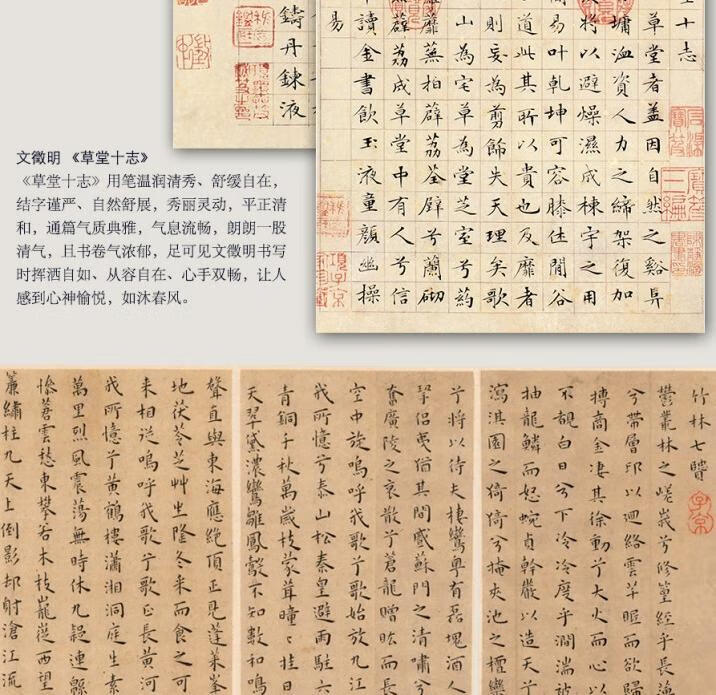 十志
草堂者蓋因自然之谿阜
墉洫資人力之締架復加
將以避燥濕成棟宇之用
易叶乾坤可容膝休閒谷
道此其所以貴也及靡者
則妄為剪飾失天理矣歌
山為宅草為堂芝室兮葯
蘼蕪拍薜荔荃壁兮蘭砌
薜荔成草堂中有人兮信
讀金書飲玉液童顏幽操
易
鑄丹鍊液
文徵明 《草堂十志》
《草堂十志》用笔温润清秀、舒缓自在，
结字谨严、自然舒展，秀丽灵动，平正清
和，通篇气质典雅，气息流畅，朗朗一股
清气，且书卷气浓郁，足可见文徵明书写
时挥洒自如、从容自在、心手双畅，让人
感到心神愉悦，如沐春风。
竹林七賢
鬱叢林之嵯峩兮修篁經乎長
兮帶層邱以迴絡雲半暝而欲歸
搏高金凄其徐動兮大火而心以
不覩白日兮下冷冷度乎澗湍被
抽龍鱗而妃蜿貞幹嚴以造天兮
瀉淇園之猗猗兮掩夾池之檀欒
兮將以待夫棲鸞奧有磊塊酒人
侶曳其間感蘇門之清嘯兮
奮廣陵之哀散兮蒼龍噌吰而長
空中旋嗚呼我歌兮歌始放九江
我所憶兮泰山松秦皇避雨駐六
青銅千秋萬歲枝蒙茸曈〻挂日
天翠黛濃鸞雛鳳鷇不知數和鳴
聲直與東海應絶頂正見蓬萊峯
地茯苓芝艸生隆冬采而食之可
来相従嗚呼我歌兮歌正長黄河
我所憶兮黃鶴樓瀟湘洞庭生素
萬里烈風震蕩無時休九疑連綿
惨蒼雲愁東攀若木枝従西望
簾繡柱九天上倒影却射滄江流